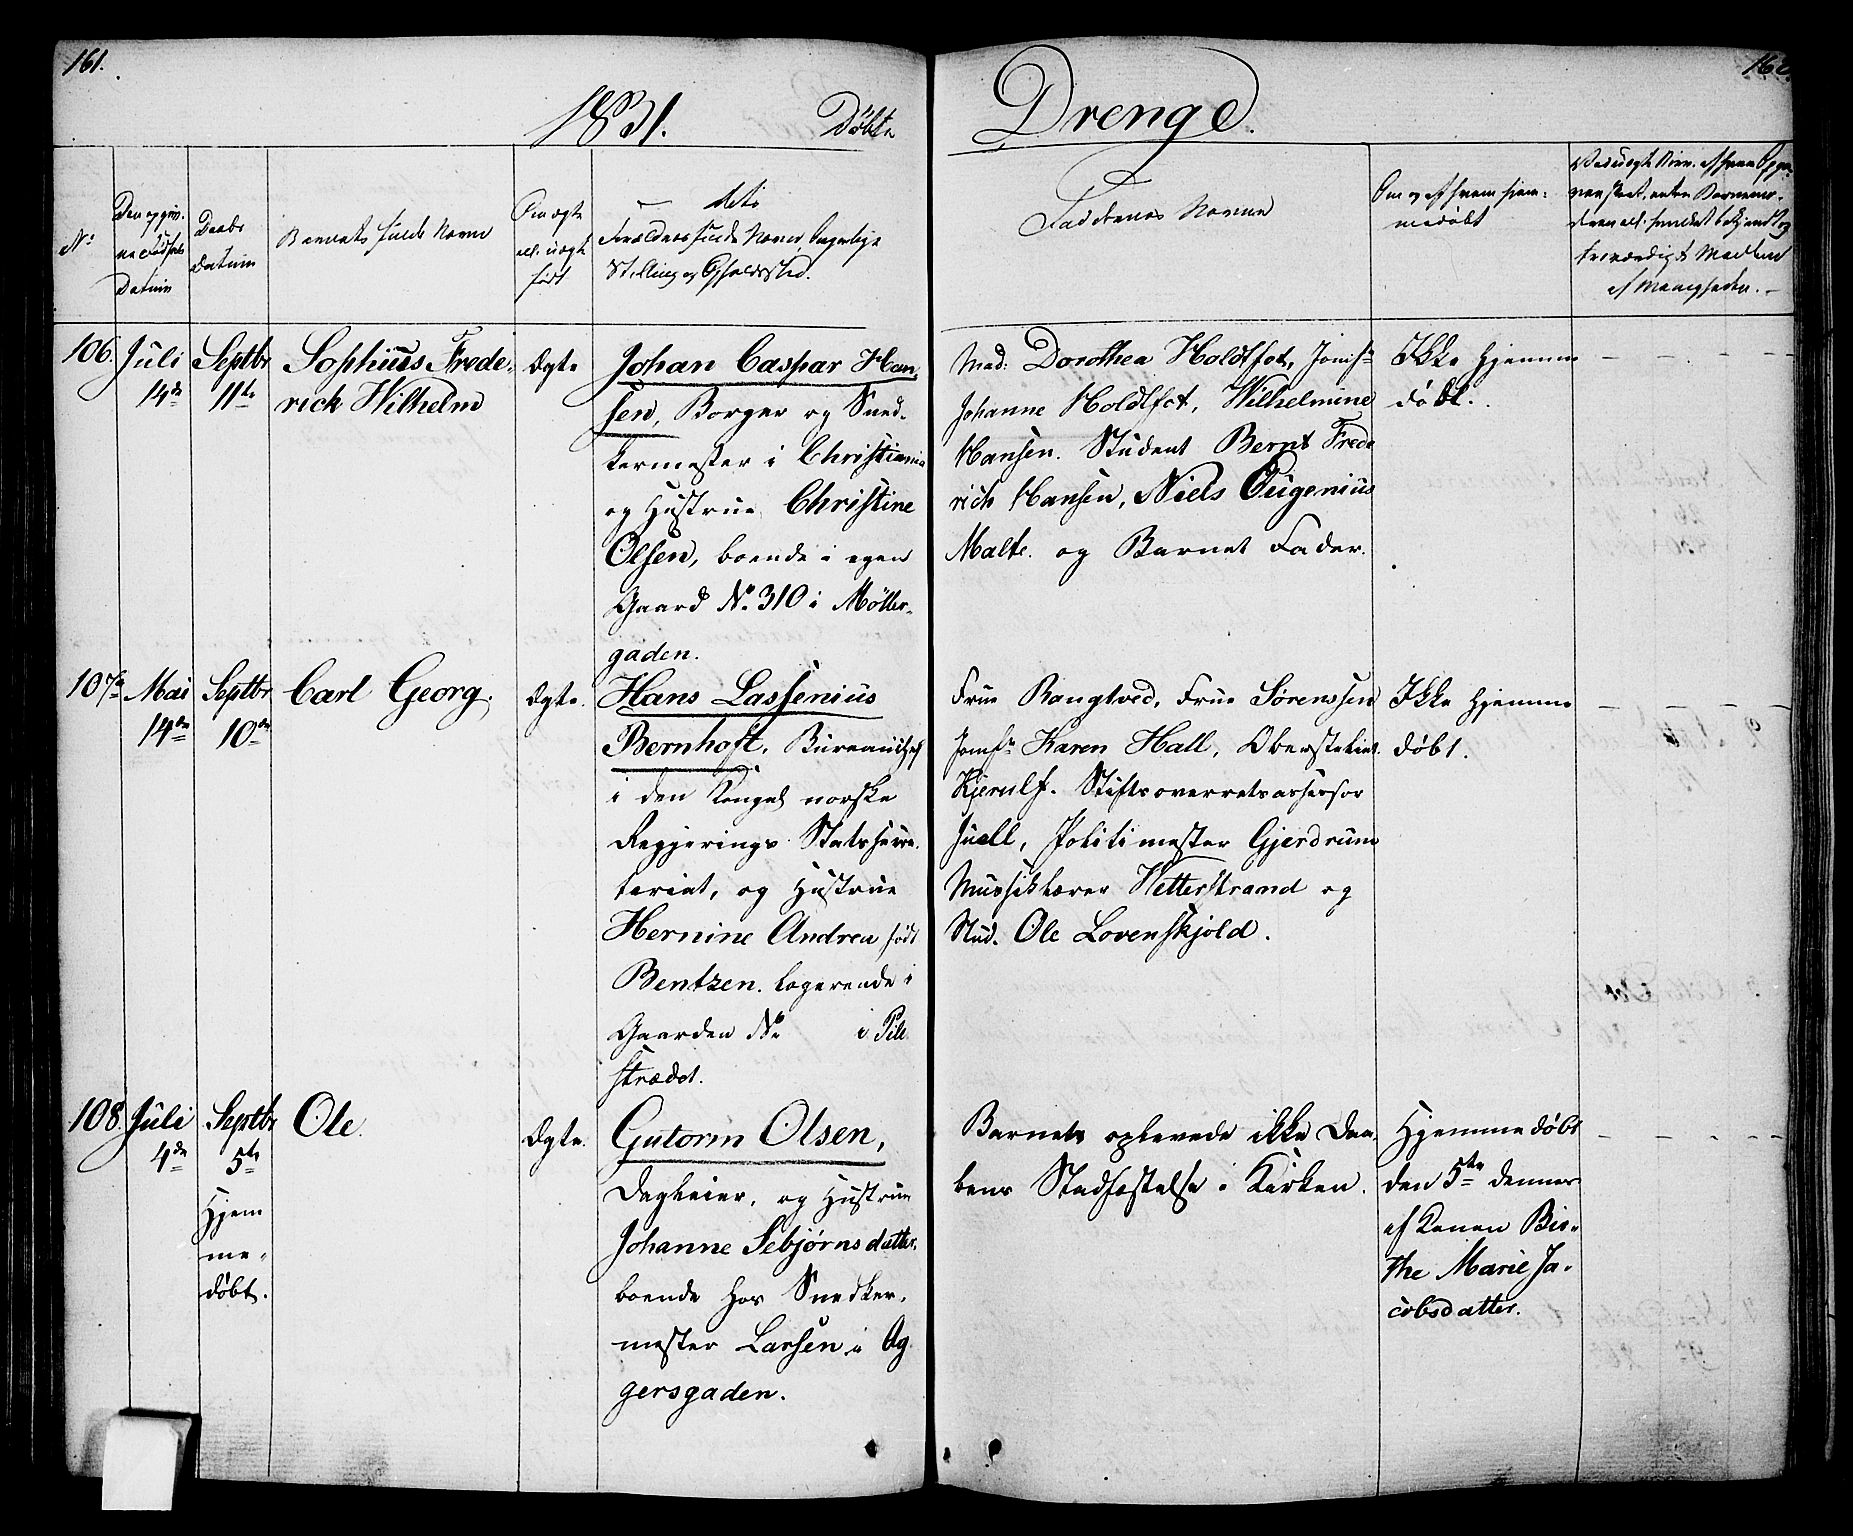 161.
162.
1831. Døbte Drenge.
No
Den opgiv-
ne Fødsels
Datum
Daabs
Datum
Barnets fulde Navne
Om ægte
ell. uægte
født
dets
Forældres fulde Navne, borgerlige
Stilling og Opholdssted.
Faddernes Navne
Om og af hvem hjem-
medøbt
106. Juli
14de
Septbr
11te
Sophius Frede-
rick Wilhelm
Ægte
Johan Caspar Han-
sen, Borger og Sned-
kermester i Christiania
og Hustrue Christine
Olsen, boende i egen
Gaard No. 310 i Møller-
gaden.
Mad: Dorothea Holdtfot, Jomfr
Johanne Holdtfot, Wilhelmine
Hansen. Student Bernt Frede
rich Hansen, Niels Eugenius
Malte. og Barnets Fader.
Ikke Hjemme
døbt.
107de Mai
14de
Septbr
10de
Carl Georg.
Ægte.
Hans Lassenius
Bernhoft, Bureauchef
i den Kongel norske
Regjerings Statssecre-
tariat, og Hustrue
Hermine Andrea født
Bentzen. logerende i
Gaarden No i Pile
strædet.
Frue Rangtved, Frue Sørenssen
Jomfr Karen Hall, Oberstelieut.
Kjerulf. Stiftsoverretsassessor
Juell, Politimester Gjerdrum
Mussiklærer Wetterstrand og
Stud. Ole Lovenskjold.
Ikke Hjemme
døbt.
108. Juli
4de
Septbr
5te
Hjem
me-
døbt.
Ole.
Ægte.
Gutorm Olsen,
Dagleier, og Hustrue
Johanne Sebjørnsdatter,
boende hos Snedker-
mester Larsen i Ag
gersgaden.
Barnets oplevede ikke Daa-
bens Stadfæstelse i Kirken.
Hjemmedøbt
den 5te dennes
af Konen Bir-
the Marie Ja-
cobsdatter.